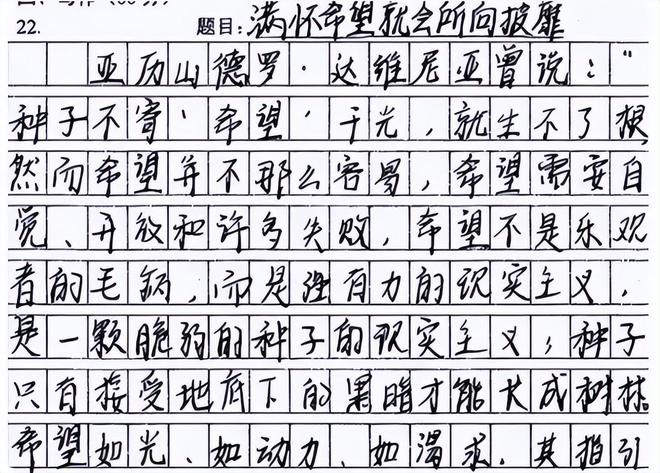 22. 题目:满怀希望就会所向披靡
亚历山德罗·达维尼亚曾说:“
种子不寄‘希望’于光,就生不了根
然而希望并不那么容易,希望需要自
觉、开放和许多失败,希望不是乐观
者的毛病,而是强有力的现实主义,
是一颗脆弱的种子的现实主义,种子
只有接受地底下的黑暗才能大成树林
希望如光、如动力、如渴求,其指引